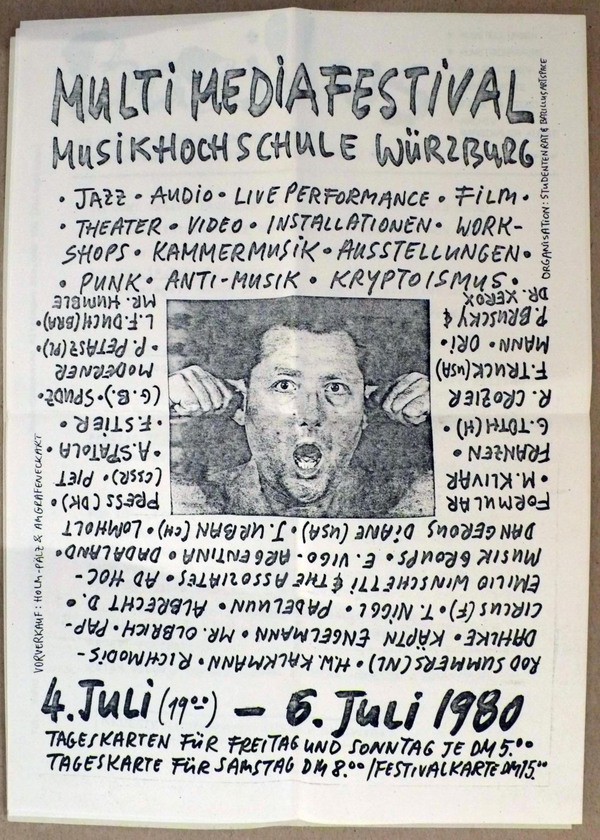 MULTIMEDIAFESTIVAL
MUSIKHOCHSCHULE WÜRZBURG
• JAZZ • AUDIO • LIVE PERFORMANCE • FILM •
• THEATER • VIDEO • INSTALLATIONEN • WORK-
SHOPS • KAMMERMUSIK • AUSSTELLUNGEN •
• PUNK • ANTI-MUSIK • KRYPTOISMUS •
ORGANISATION: STUDENTENRAT & BAZILLUS ARTSPACE
VORVERKAUF: HOLM-PALZ & AM GRAFENECKART
ROD SUMMERS (NL) • H.W. KALKMANN • RICHMODIS-
DAHLKE • KÄPTN ENGELMANN • MR. OLBRICH • PAP-
CIRCUS (F) • T. NIGGL • PADELUUN • ALBRECHT D. •
EMILIO WINSCHETTI & THE ASSOZIATES • AD HOC-
MUSIK GROUPS • E. VIGO - ARGENTINA • DADALAND •
DANGEROUS DIANE (USA) • J. URBAN (CH) • LOMHOLT
FORMULAR PRESS (DK) •
• M. KLIVAR (CSSR) • PIET
FRANZEN • A. SPATOLA •
G. TOTH (H) • F. STIER •
R. CROZIER (G.B.) • SPUDZ •
F. TRUCK (USA) MODERNER
MANN • ORI • P. PETASZ (PL) •
P. BRUSCKY & L.F. DUCH (BRA) •
DR. XEROX MR. HUMBLE
4. JULI (19⁰⁰) – 6. JULI 1980
TAGESKARTEN FÜR FREITAG UND SONNTAG JE DM 5.⁰⁰
TAGESKARTE FÜR SAMSTAG DM 8.⁰⁰ / FESTIVALKARTE DM 15.⁰⁰